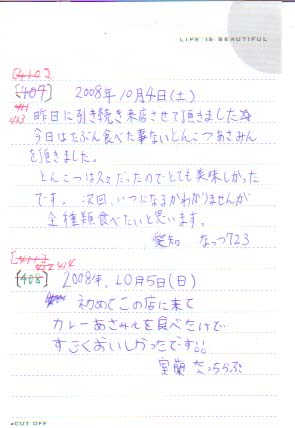 LIFE IS BEAUTIFUL
[410]
[409] 2008年10月4日(土)
411
413 昨日に引き続き来店させて頂きました☆
今日はたぶん食べた事ないとんこつあさみん
を頂きました。
とんこつは久々だったのでとても美味しかった
です。次回、いつになるかわかりませんが
全種類食べたいと思います。
愛知 なっつ723
[411]
412 414
[408] 2008年、10月5日(日)
初めてこの店に来て
カレーあさみんを食べたけど
すごくおいしかったです!!
室蘭
CUT OFF